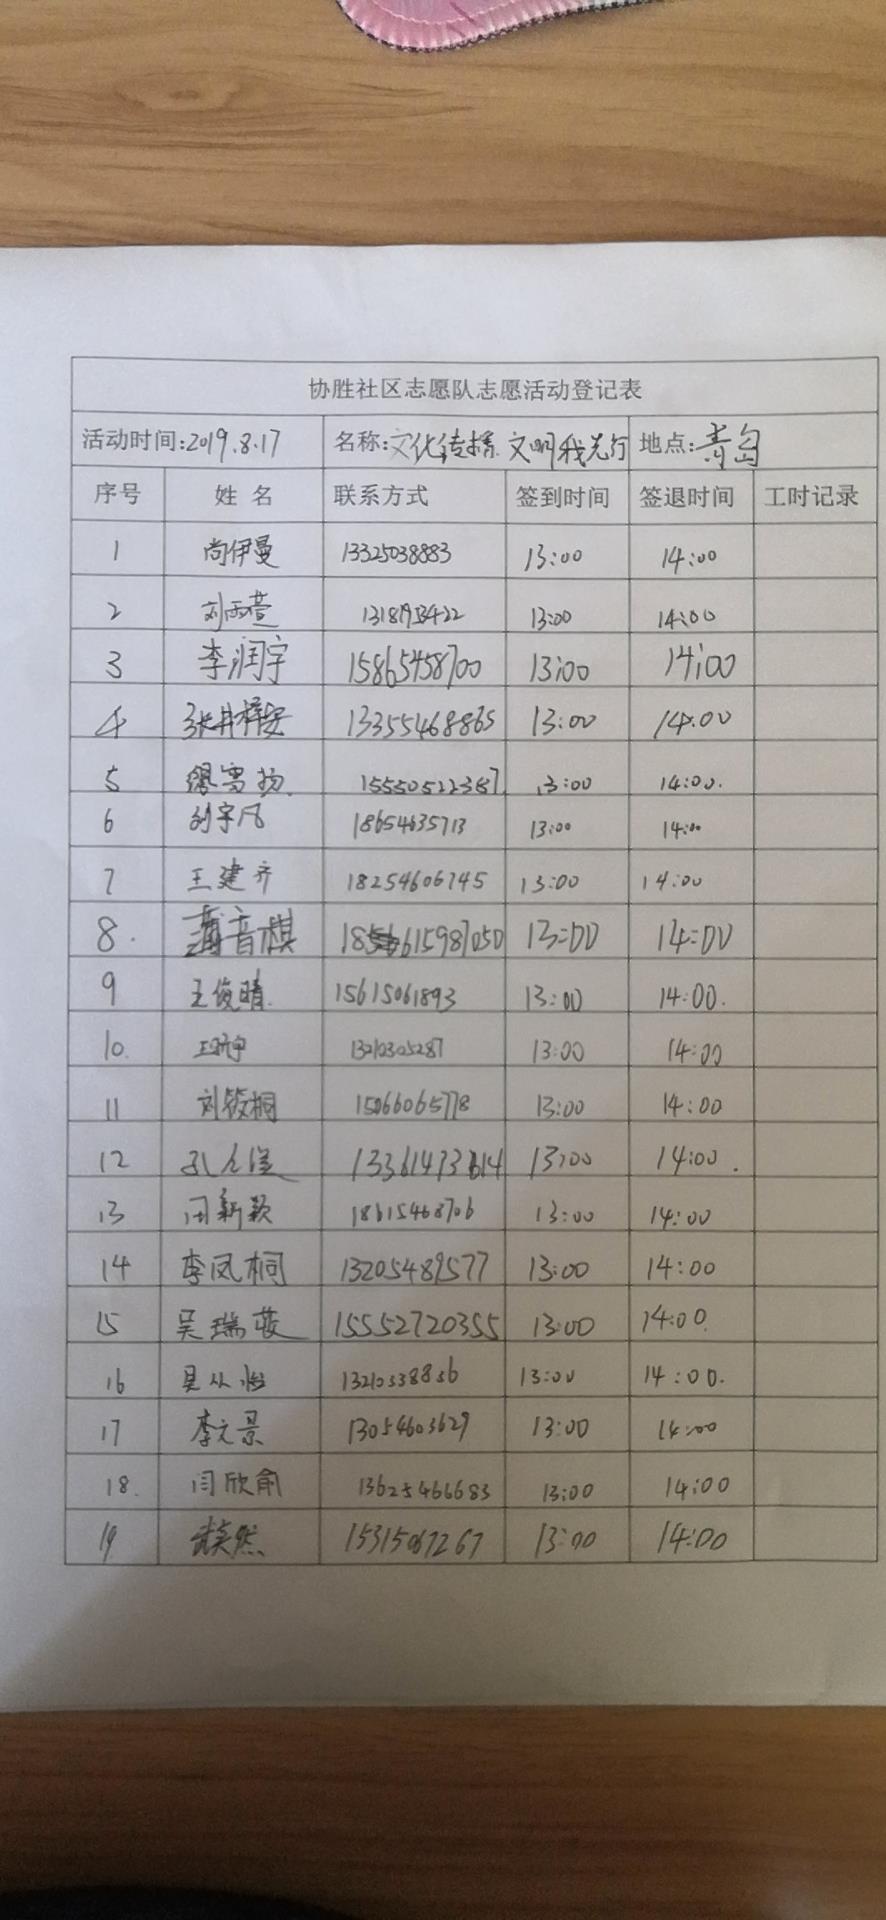 协胜社区志愿队志愿活动登记表
活动时间:2019.8.17 名称:文化传播 文明我先行 地点:青岛
序号 姓名 联系方式 签到时间 签退时间 工时记录
1 尚伊曼 13325038883 13:00 14:00
2 刘雨萱 13:00 14:00
3 李润宇 15865458700 13:00 14:00
4 13355468865 13:00 14:00
5 15550522387 13:00 14:00.
6 刘宇凡 18654635713 13:00 14:00
7 王建齐 18254606745 13:00 14:00
8. 音棋 13:00 14:00
9 王俊晴 15615061893 13:00 14:00.
10. 13210305287 13:00 14:00
11 刘筱桐 15066065778 13:00 14:00
12 13:00 14:00.
13 闫新颖 18615468706 13:00 14:00
14 李凤桐 13205489577 13:00 14:00
15 吴瑞 15552720355 13:00 14:00.
16 13210338836 13:00 14:00.
17 李元景 13054603629 13:00 14:00
18. 闫欣俞 13625466683 13:00 14:00
19 15315067267 13:00 14:00